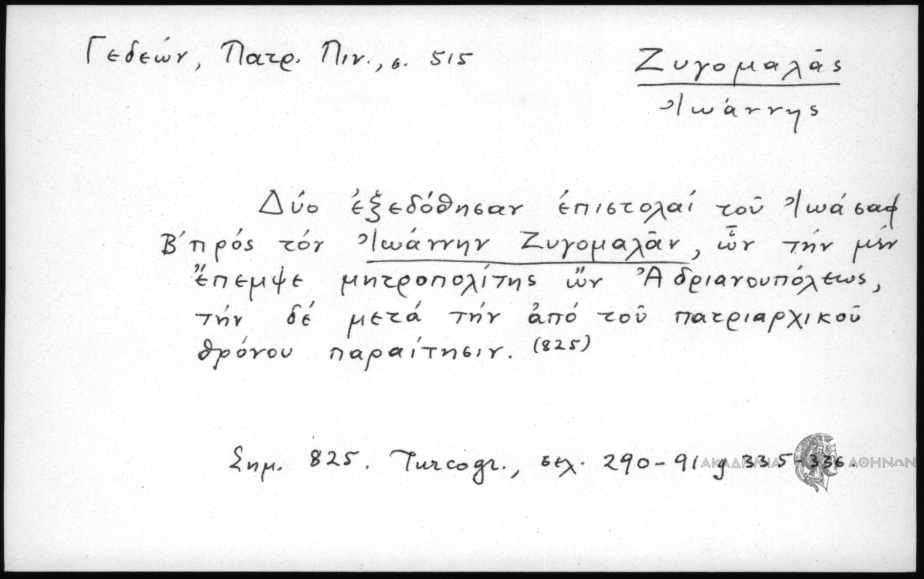 Γεδεών, Πατρ. Πιν., σ. 515
Ζυγομαλᾶς
Ἰωάννης
Δύο ἐξεδόθησαν ἐπιστολαί τοῦ Ἰωάσαφ
Β΄ πρός τόν Ἰωάννην Ζυγομαλᾶν, ὧν τήν μέν
ἔπεμψε μητροπολίτης ὤν Ἀδριανουπόλεως,
τήν δέ μετά τήν ἀπό τοῦ πατριαρχικοῦ
θρόνου παραίτησιν. (825)
Σημ. 825. Turcogr., σελ. 290-91 335-336.
ΑΚΑΔΗΜΙΑ ΑΘΗΝΩΝ